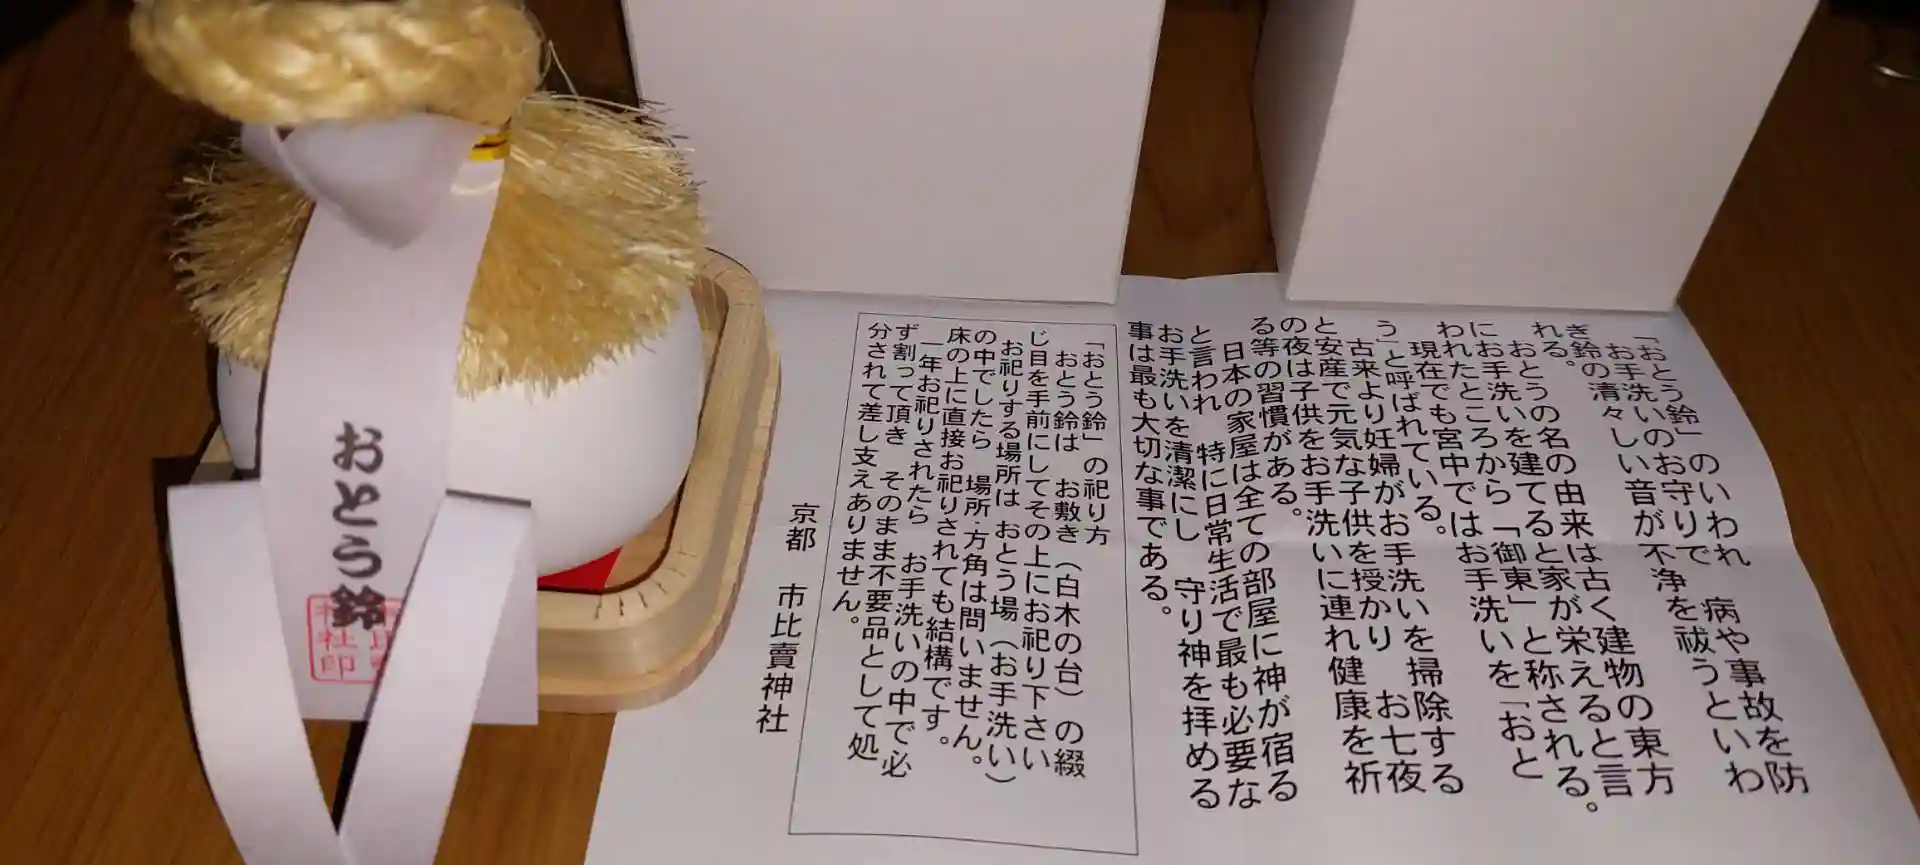 おとう鈴
「おとう鈴」のいわれ
お手洗いのお守りで　病や事故を防
き鈴の清々しい音が不浄を祓うといわ
れる。
おとうの名の由来は古く建物の東方
にお手洗いを建てると家が栄えると言
われたところから「御東」と称される。
現在でも宮中ではお手洗いを「おと
う」と呼ばれている。
古来より妊婦がお手洗いを掃除する
と安産で元気な子供を授かり　お七夜
の夜は子供をお手洗いに連れ健康を祈
る等の習慣がある。
日本の家屋は全ての部屋に神が宿る
と言われ　特に日常生活で最も必要な
お手洗いを清潔にし　守り神を拝める
事は最も大切な事である。
「おとう鈴」の祀り方
おとう鈴は　お敷き（白木の台）の綴
じ目を手前にしてその上にお祀り下さい
お祀りする場所は　おとう場（お手洗い）
の中でしたら　場所・方角は問いません。
床の上に直接お祀りされても結構です。
一年お祀りされたら　お手洗いの中で必
ず割って頂き　そのまま不要品として処
分されて差し支えありません。
京都　市比賣神社